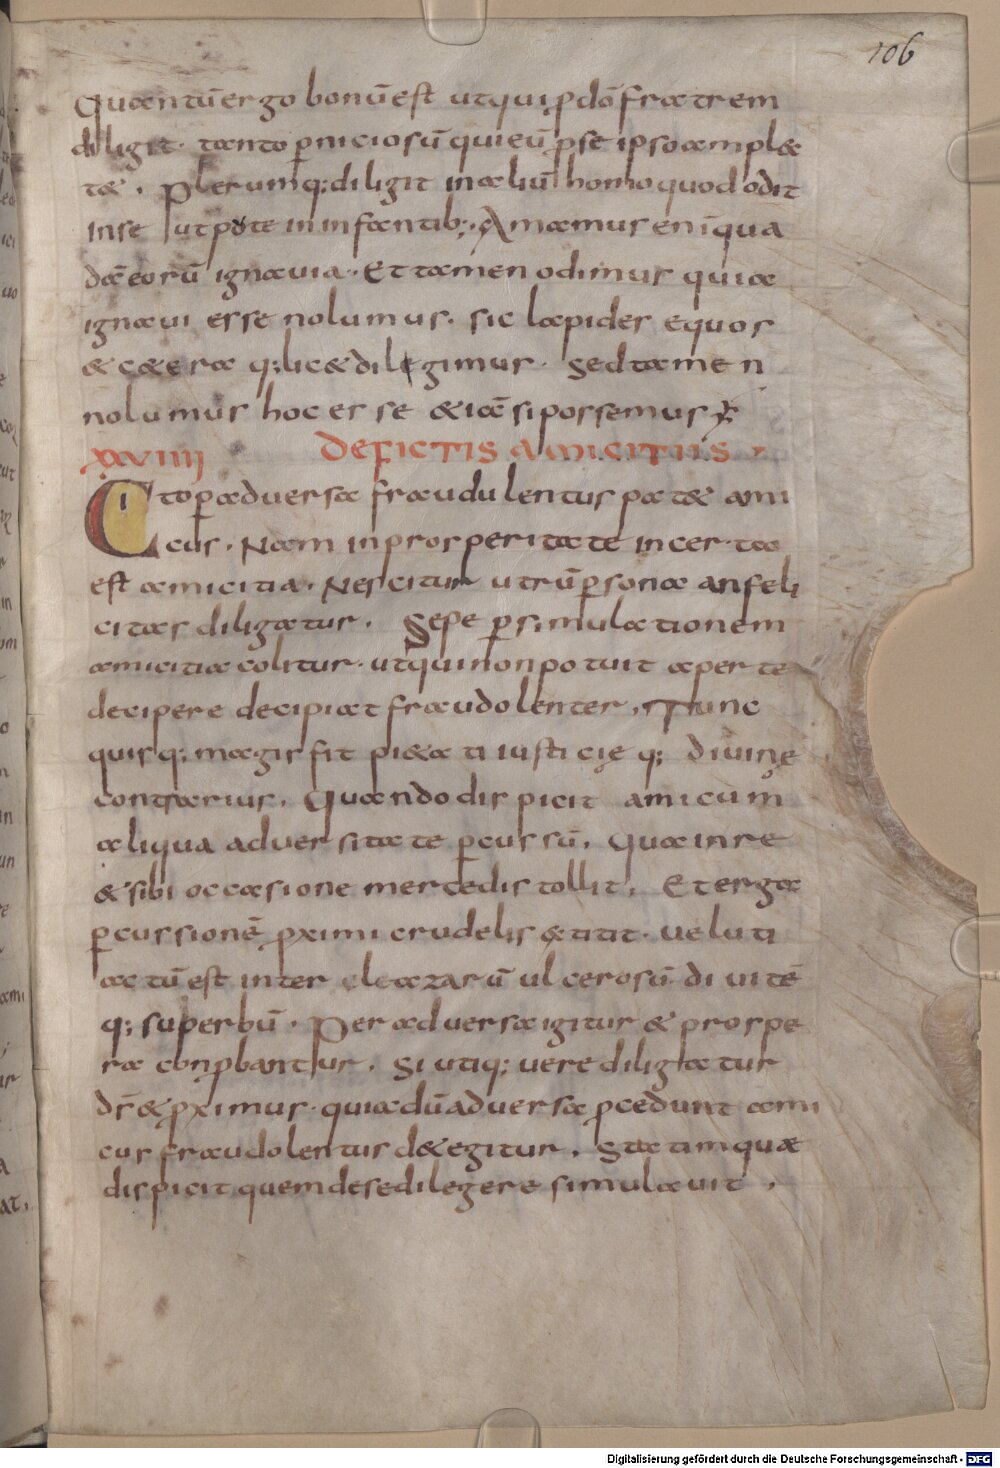 106
Quantū ergo bonū est ut qui ꝓ dō fratrem
diligit · tanto ꝑniciosū qui eū ꝓ se ipso ampl&
tæ . Plerumq; diligit in aliū homo quod odit
in se ut pote in infantib; . Amamus enī qua
dā eorū ignavia · Et tamen odimus quia
ignavi esse nolumus . sic lapides equos
& c&era q; lic& dilegimus · sed tamen
nolumus hoc esse & iā si possemus
xxviiii De fictis amicitiis .
Cito ꝑ adversa fraudulentus pat& ami
cus . Nam in prosperitate incerta
est amicitia . Nescitur utrū ꝑsona an feli
citas diligatur . Sepe ꝑ simulationem
amicitia colitur · ut qui non potuit aperte
decipere decipiat fraudolenter . Tunc
quisq; magis fit pi&ati iusticię q; divinę
contrarius . Quando dispicit amicum
aliqua adversitate ꝑcussū . Qua in re
& sibi occasione mercedis tollit . Et erga
ꝑcussionē ꝓximi crudelis &titit . veluti
actū est inter eleazarū ulcerosū divitē
q; superbū . Per adversa igitur & prospe
ra conꝓbantur . Si utiq; vere diligatur
dr̄ & ꝓximus · quia dū adversa ꝓcedunt ami
cus fraudolentus d&egitur . Statim quæ
dispicit quem de se dilegere simulavit .
Digitalisierung gefördert durch die Deutsche Forschungsgemeinschaft - DFG